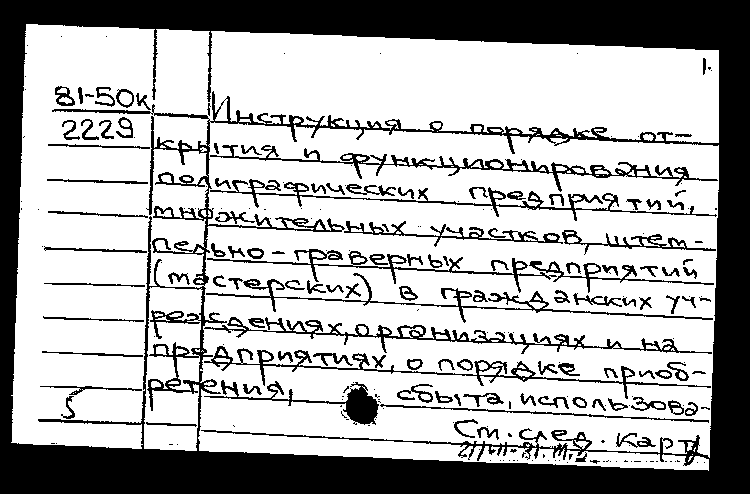 1.
81-50к
2229
Инструкция о порядке от-
крытия и функционирования
полиграфических предприятий,
множительных участков, штем-
пельно-граверных предприятий
(мастерских) в гражданских уч-
реждениях, организациях и на
предприятиях, о порядке приоб-
ретения, сбыта, использова-
5
См. след. карту